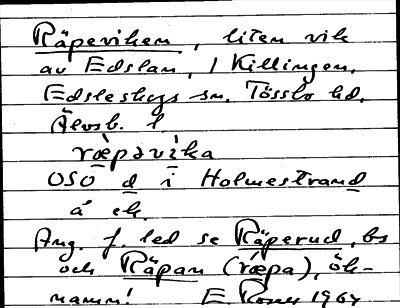 Räpeviken, liten vik
av Edslan, i Killingen,
Edsleskogs sn. Tössbo hd.
Älvsb. l
ræpəvìka
OSO d i Holmestrand
å ek.
Ang. f. led se Räperud, bs
och Räpan (ræpa), ök-
namn! E Rosen 1964